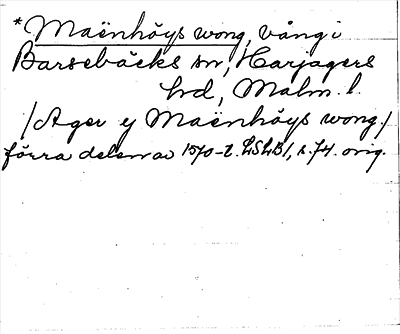 *Maënhöys wong, vång i
Barsebäcks sn, Harjagers
hd, Malm. l.
/Ager y Maënhöys wong/
förra delen av 1570-t. LSLB1, s. 74. orig.